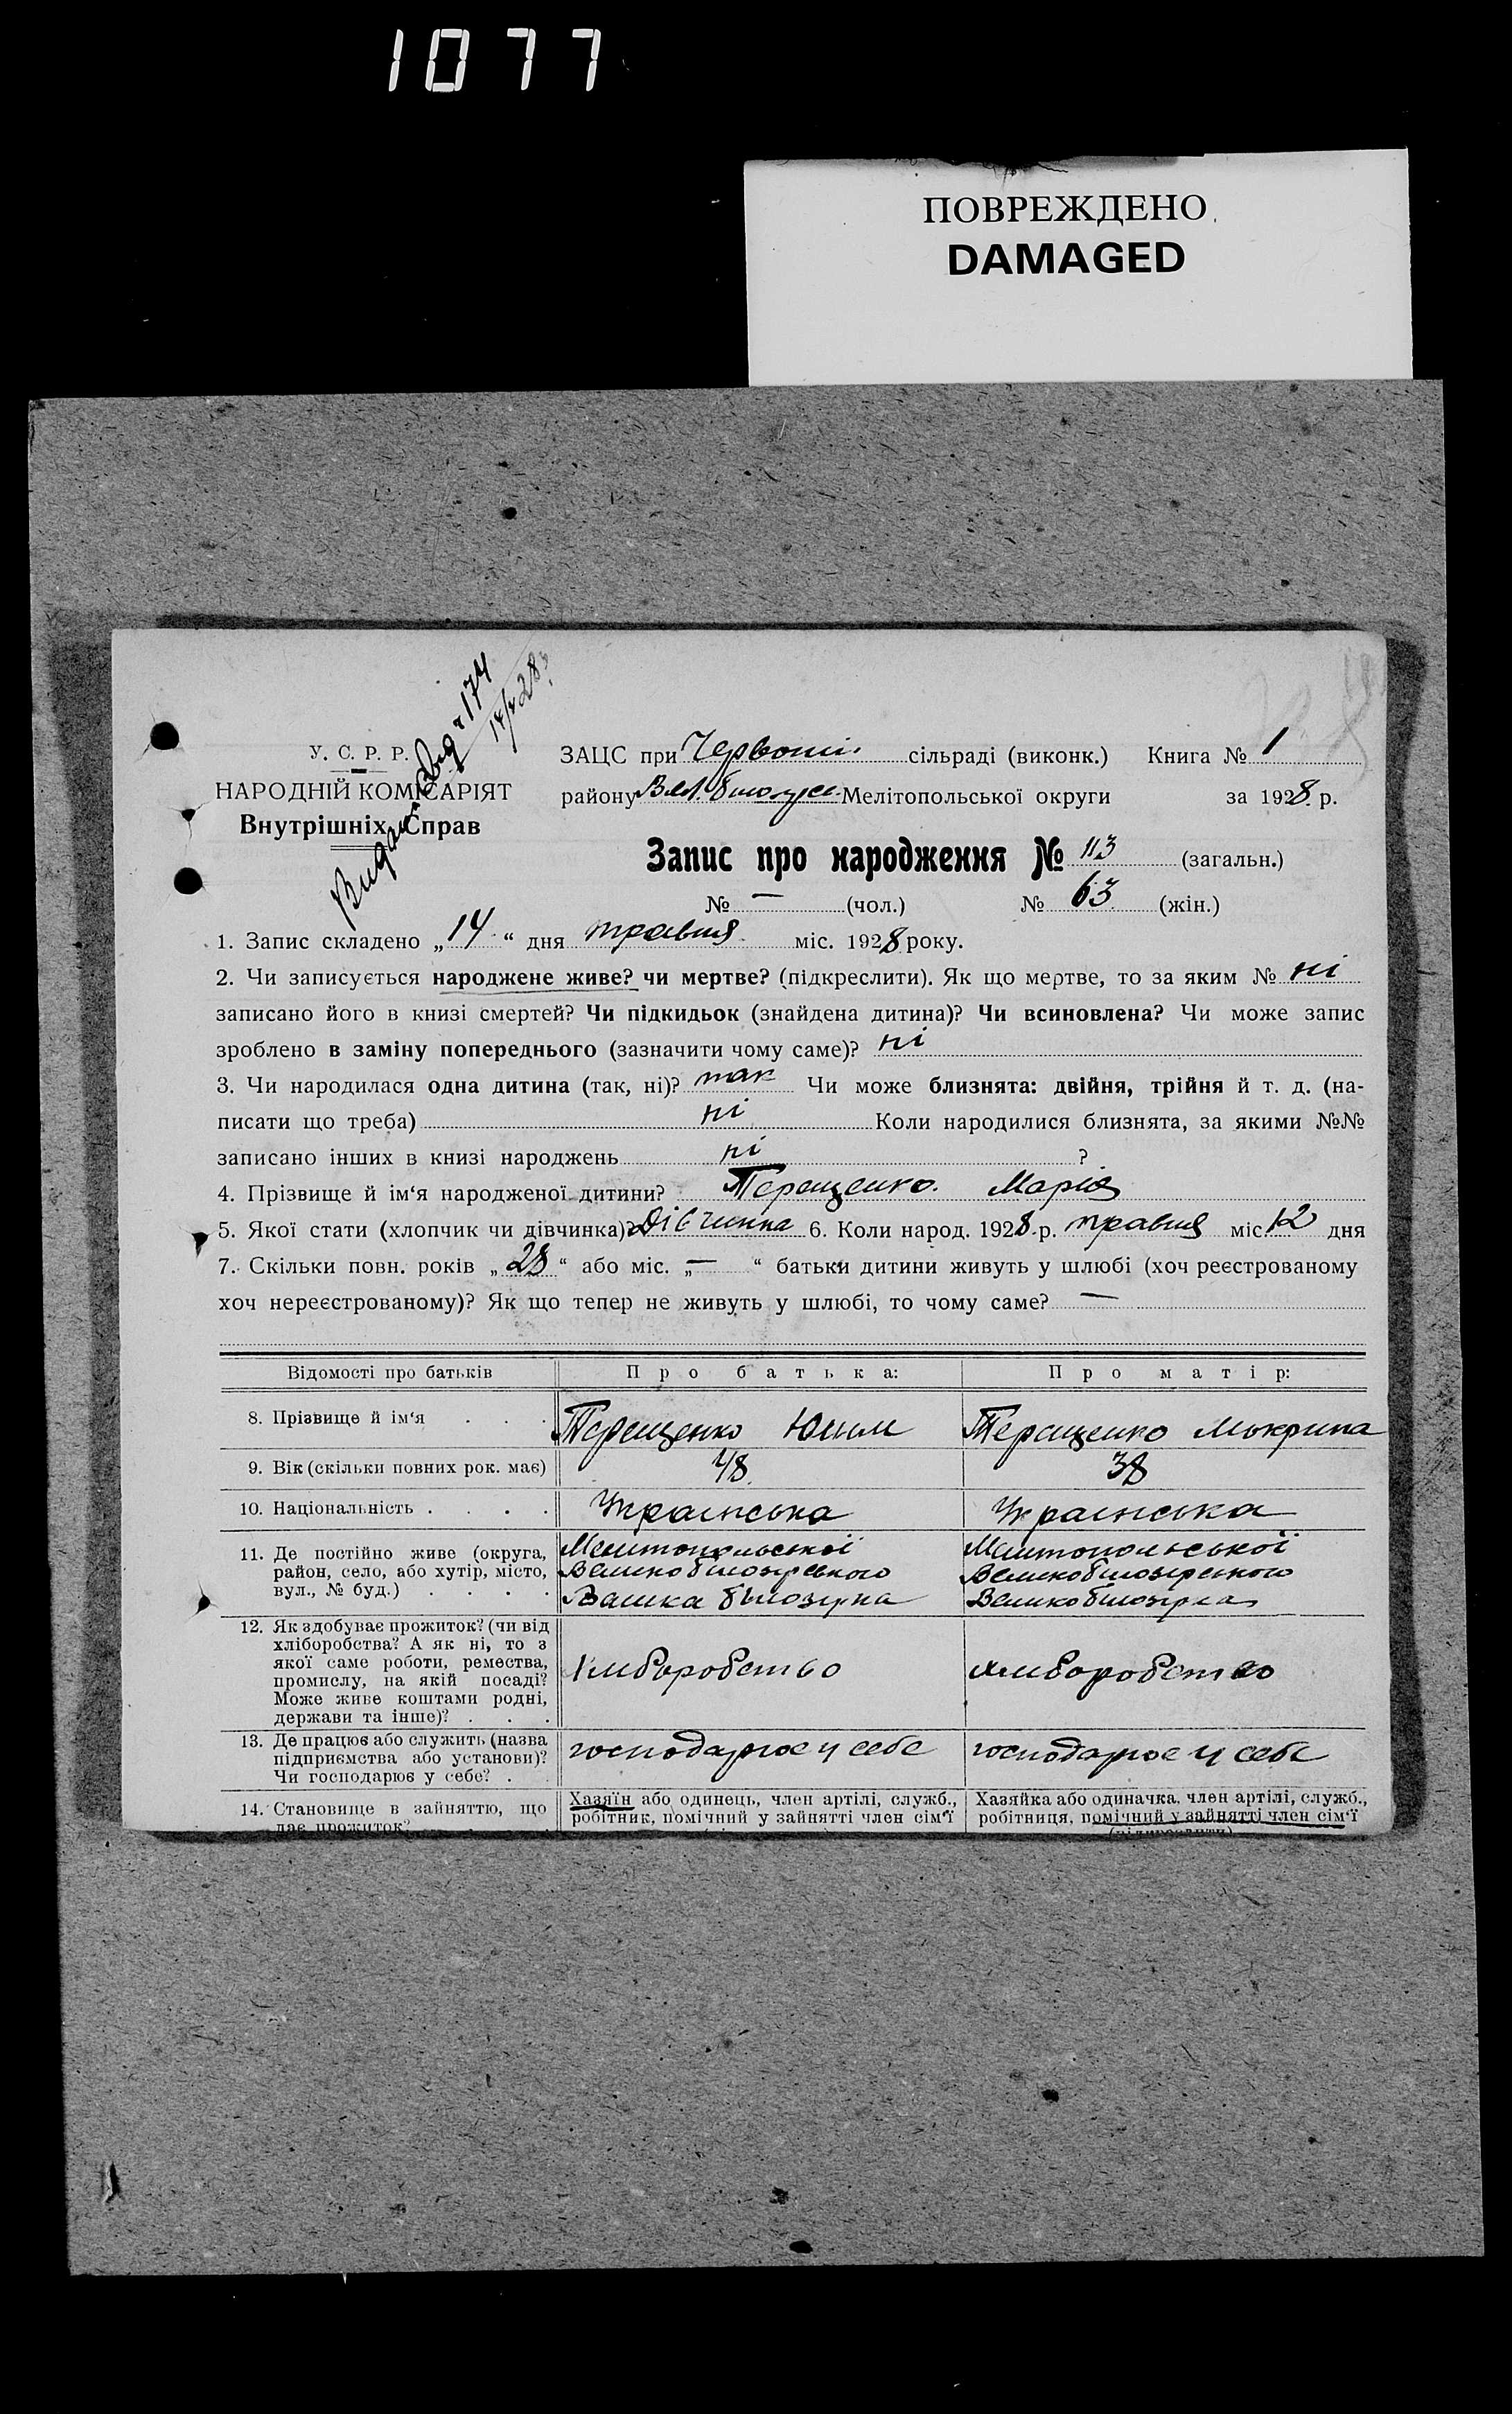 1077
ПОВРЕЖДЕНО
DAMAGED
174
14/V 28
У. С. Р. Р.
НАРОДНІЙ КОМІСАРІЯТ
Внутрішніх Справ
ЗАЦС при Червоній сільраді (виконк.) Книга № 1
району Вел. Білозер. Мелітопольської округи за 1928 р.
Запис про народження № 113 (загальн.)
№ — (чол.) № 63 (жін.)
1. Запис складено „14“ дня травня міс. 1928 року.
2. Чи записується народжене живе? чи мертве? (підкреслити). Як що мертве, то за яким № ні
записано його в книзі смертей? Чи підкидьок (знайдена дитина)? Чи всиновлена? Чи може запис
зроблено в заміну попереднього (зазначити чому саме)? ні
3. Чи народилася одна дитина (так, ні)? так Чи може близнята: двійня, трійня й т. д. (на-
писати що треба) ні Коли народилися близнята, за якими №№
записано інших в книзі народжень ні ?
4. Прізвище й ім‘я народженої дитини? Терещенко. Марія
5. Якої стати (хлопчик чи дівчинка)? Дівчинка 6. Коли народ. 1928 р. травня міс 12 дня
7. Скільки повн. років „28“ або міс. „—“ батьки дитини живуть у шлюбі (хоч реєстрованому
хоч нереєстрованому)? Як що тепер не живуть у шлюбі, то чому саме? —
Відомості про батьків Про батька: Про матір:
8. Прізвище й ім‘я . . . Терещенко Юхим Терещенко Мокрина
9. Вік (скільки повних рок. має) 48 38
10. Національність . . . . Українська Українська
11. Де постійно живе (округа, район, село, або хутір, місто, вул., № буд.) . . . .
Мелітопольської
Великобілозерського
Велика білозерка
Мелітопольської
Великобілозерського
Великобілозерка
12. Як здобуває прожиток? (чи від
хліборобства? А як ні, то з
якої саме роботи, ремества,
промислу, на якій посаді?
Може живе коштами родні,
держави та інше)? . . .
хліборобство хліборобство
13. Де працює або служить (назва
підприємства або установи)?
Чи господарює у себе? .
господарює у себе господарює у себе
14. Становище в зайняттю, що
дає прожиток?
Хазяїн або одинець, член артілі, служб.,
робітник, помічний у зайнятті член сім‘ї
Хазяйка або одиначка, член артілі, служб.,
робітниця, помічний у зайнятті член сім‘ї
(підкреслити)